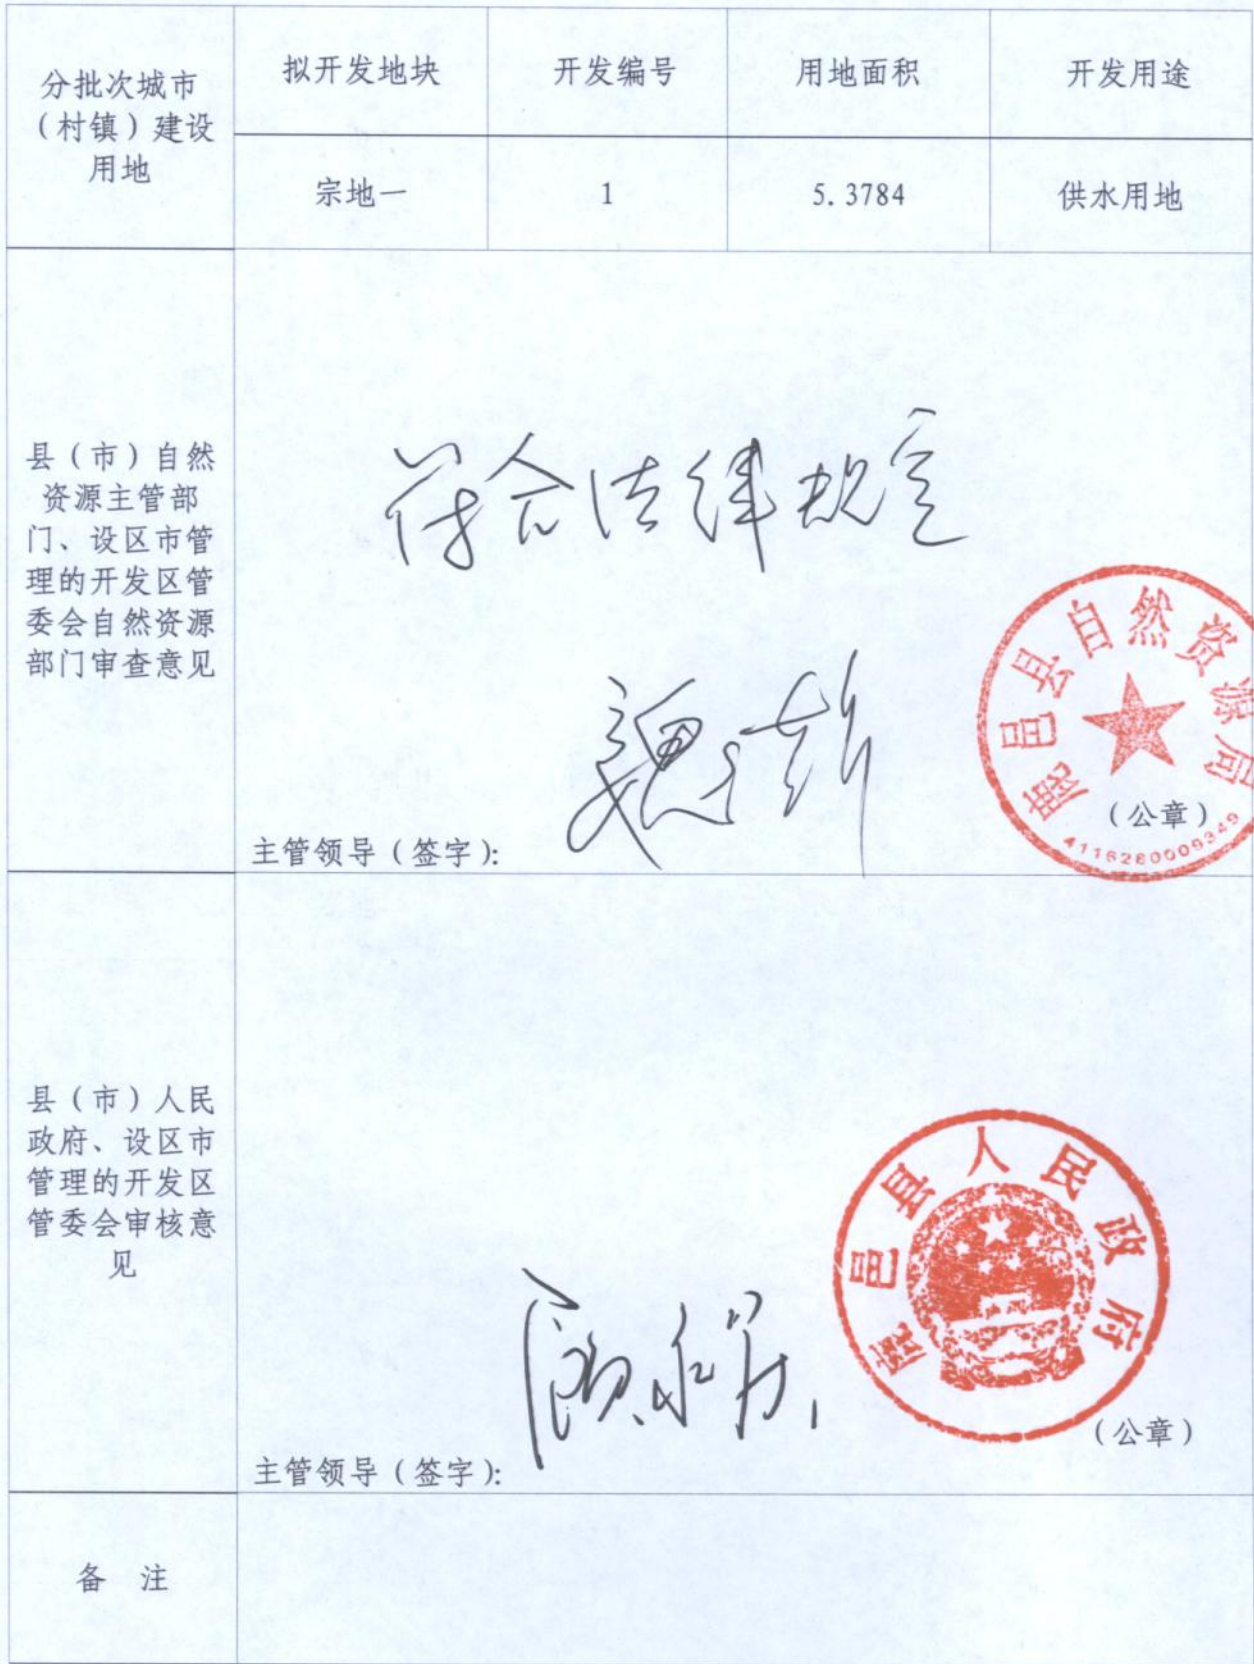 分批次城市
（村镇）建设
用地
拟开发地块
开发编号
用地面积
开发用途
宗地一
1
5.3784
供水用地
县（市）自然
资源主管部
门、设区市管
理的开发区管
委会自然资源
部门审查意见
符合法律规定
鹿邑县自然资源局
（公章）
4116280009349
主管领导（签字）:
县（市）人民
政府、设区市
管理的开发区
管委会审核意
见
鹿邑县人民政府
（公章）
主管领导（签字）:
备 注